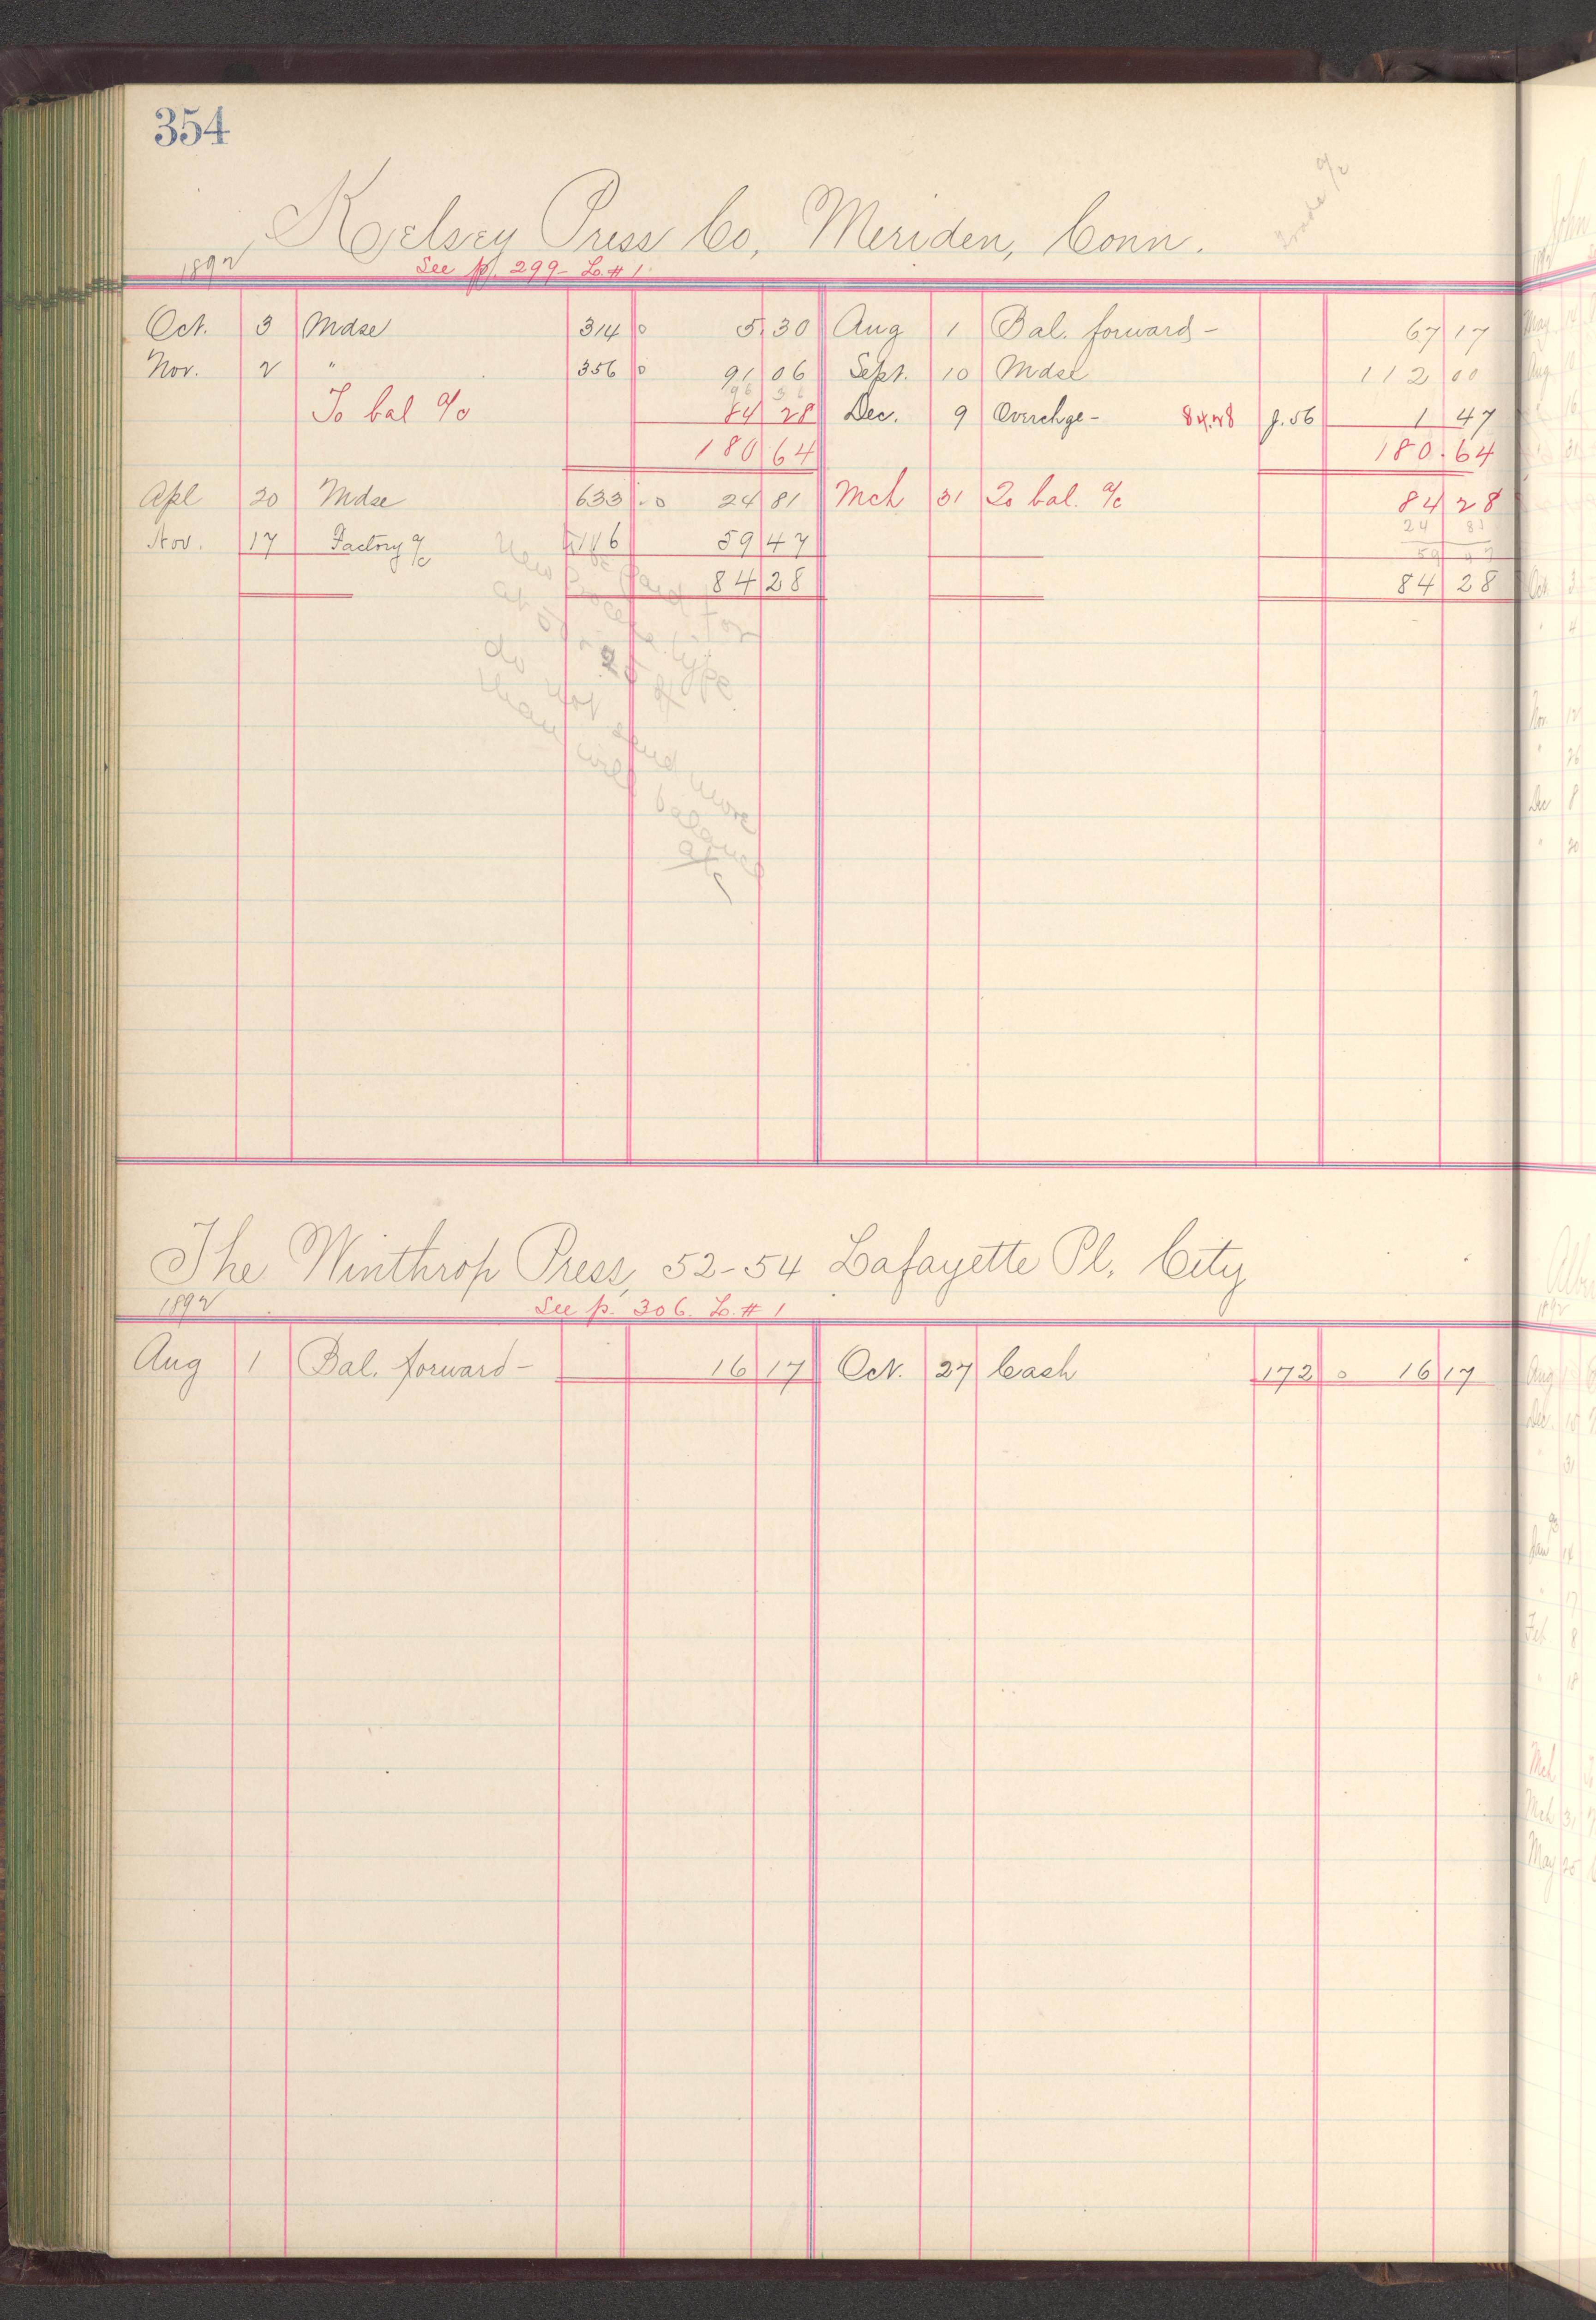 354
Trade a/c
Kelsey Press Co, Meriden, Conn.
1892 See p. 299- L. # 1
Oct. 3 Mdse 314 0 5.30 Aug 1 Bal. forward- 67 17
Nov. 2 " 356 0 91 06 Sept. 10 Mdse 112 00
96 36
To bal a/c 84 28 Dec. 9 Overchge- 84.28 J. 56 1 47
180.64 180.64
Apl 20 Mdse 633 -0 24 81 Mch 31 To bal. a/c 84 28
24 81
Nov. 17 Factory a/c 59 47
59 47
84 28 84 28
to be paid for
New process type
at off
do not send more
than will balance
a/c
The Winthrop Press, 52-54 Lafayette Pl. City
1892 See p. 306. L. # 1
Aug 1 Bal. forward- 16 17 Oct. 27 Cash 172 0 16 17